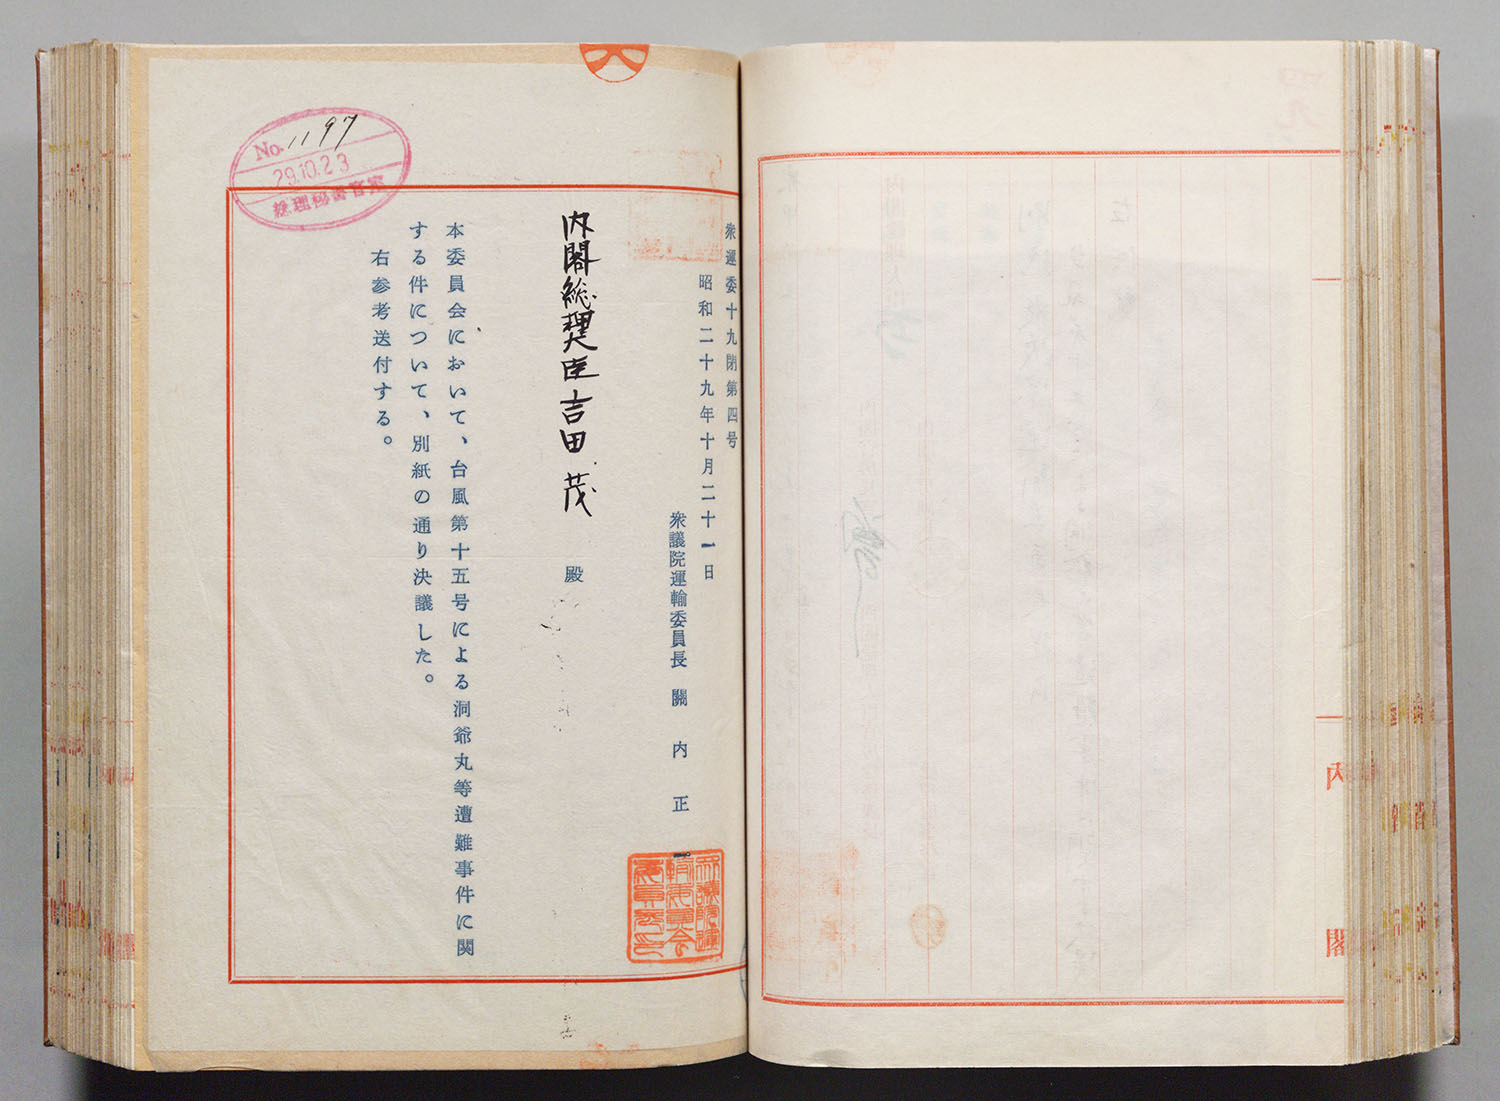 衆運委十九閉第四号
昭和二十九年十月二十一日
衆議院運輸委員長 關内正一
内閣総理大臣吉田茂 殿
本委員会において、台風第十五号による洞爺丸等遭難事件に関
する件について、別紙の通り決議した。
右参考送付する。
No. 1197
29.10.23
総理秘書官室
内閣